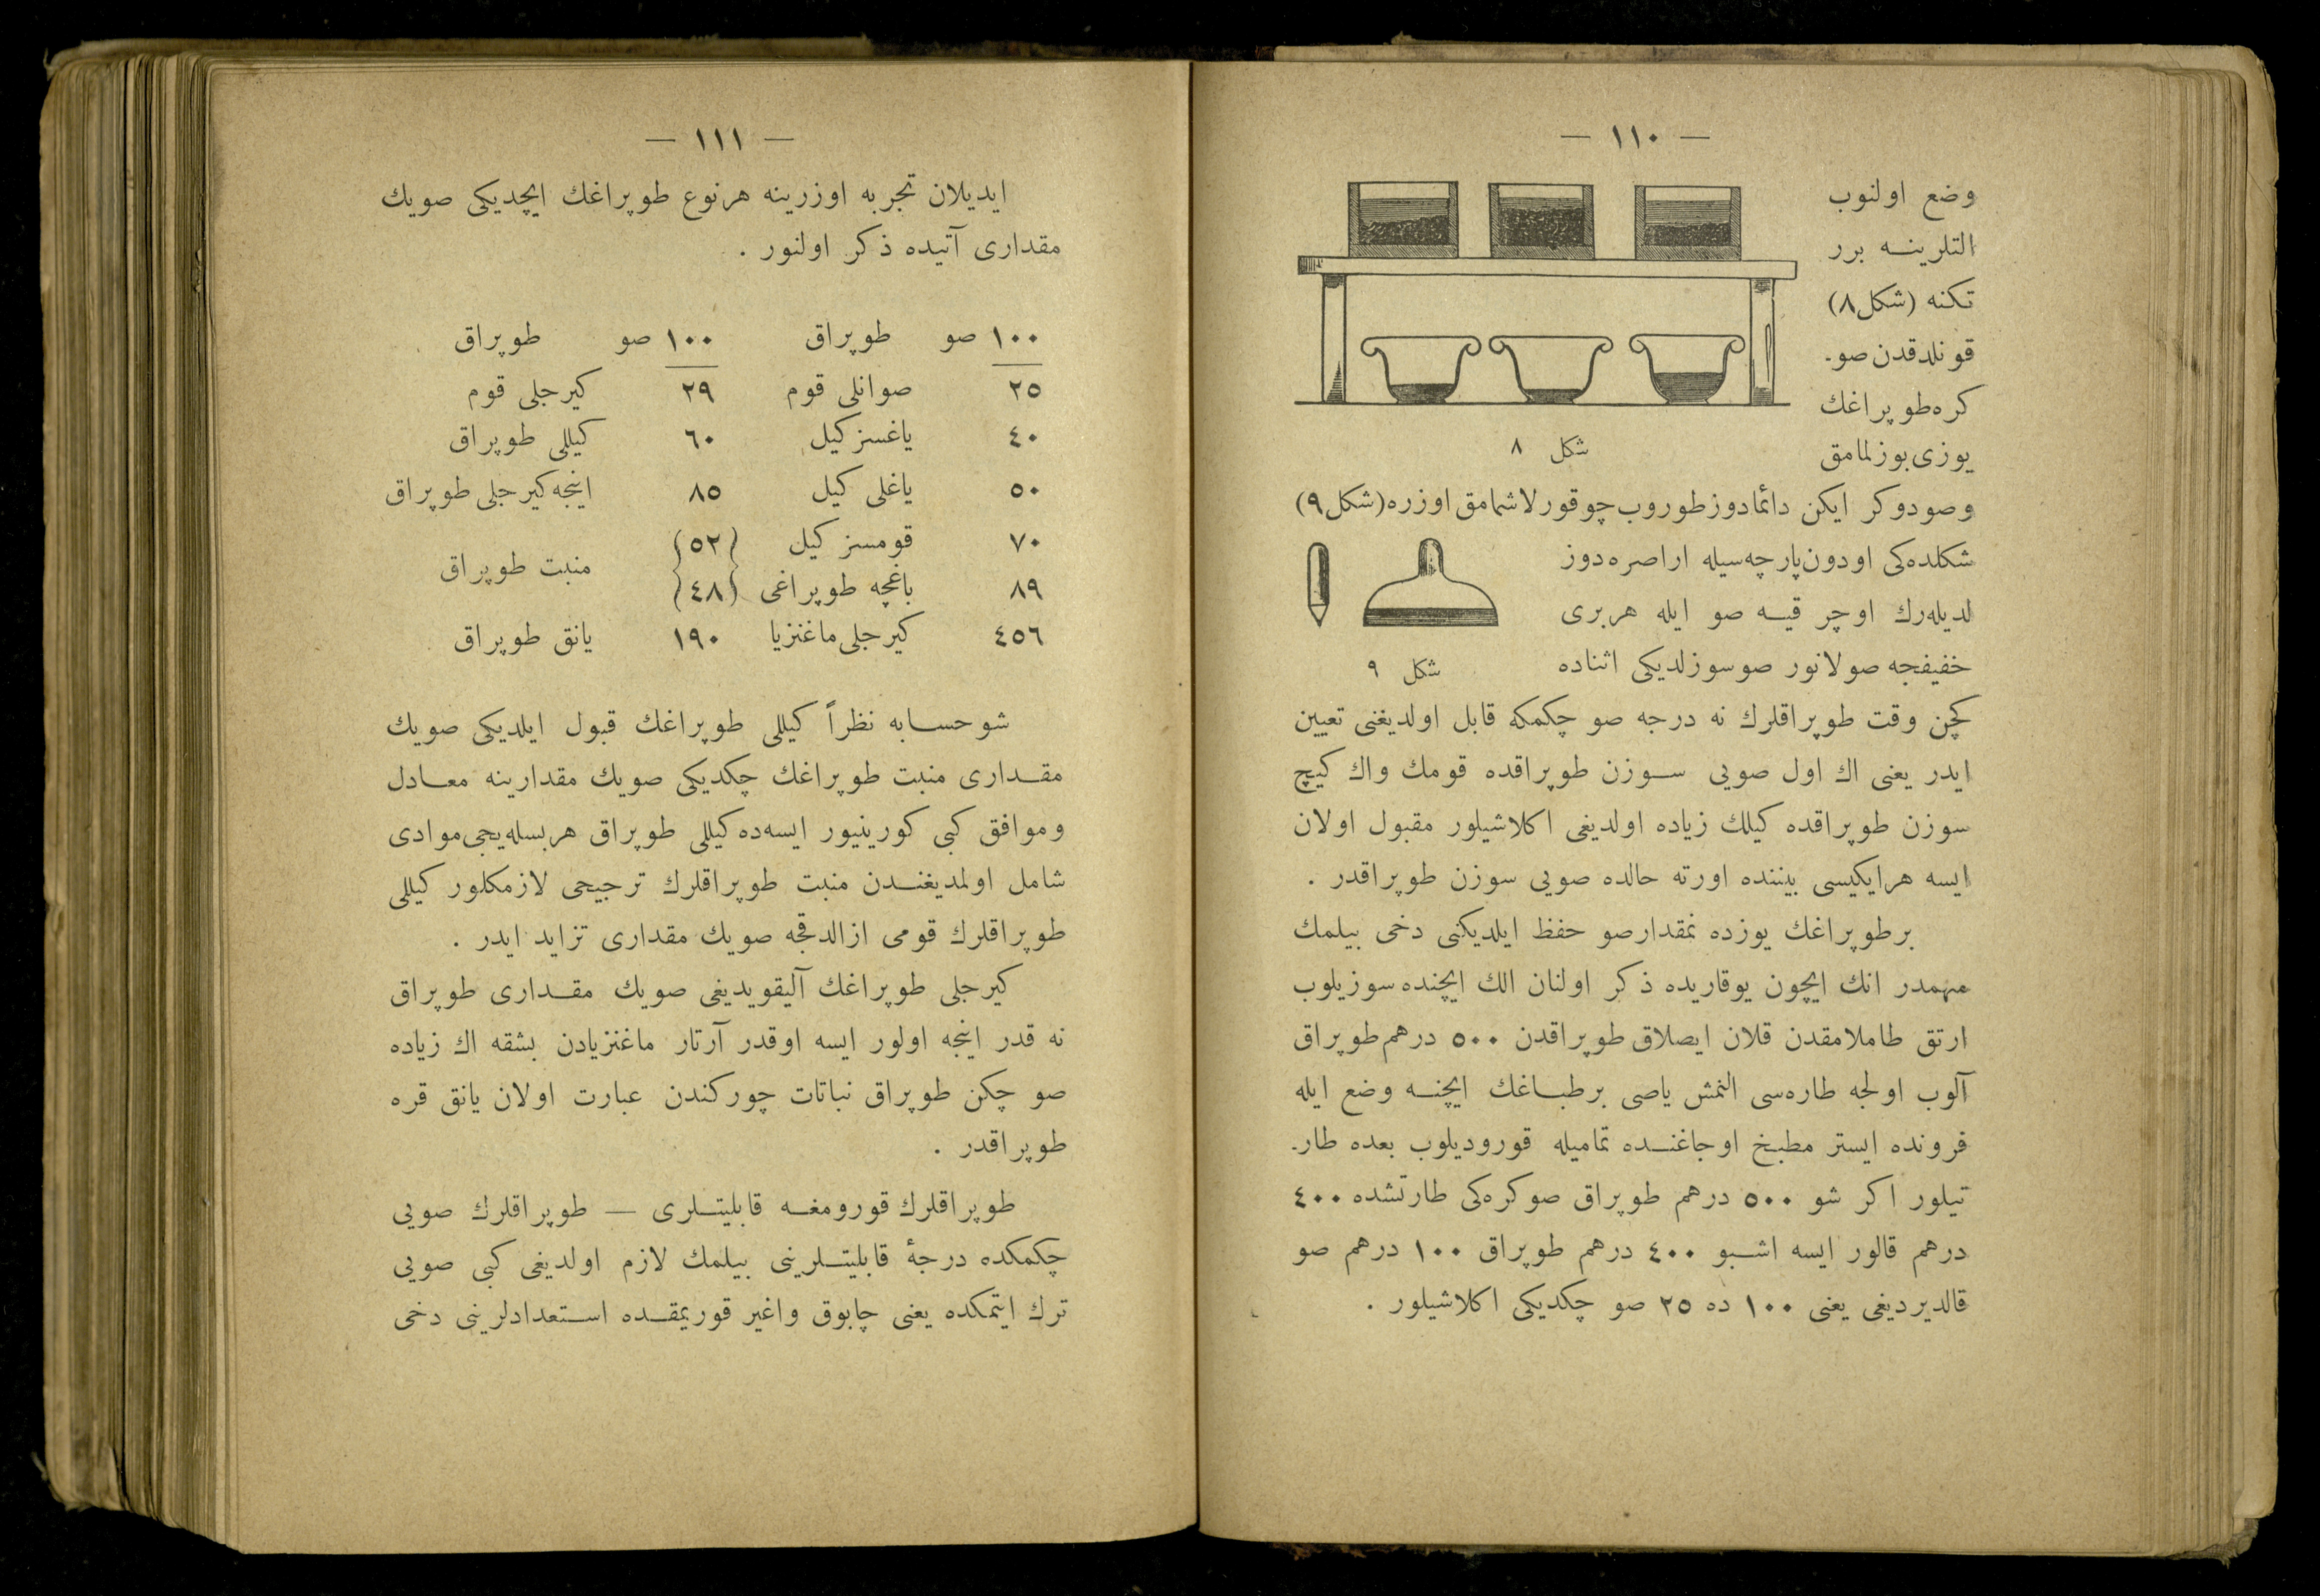 — ١١٠ —
وضع اولنوب
التلرینه برر
تكنه (شكل٨)
قونلدقدن صو-
كره طوپراغك
یوزی بوزلمامق
شكل ٨
وصودوكر ایكن دائمادوز طوروب چوقورلاشمامق اوزره (شكل٩)
شكلده‌كی اودون پارچه‌سیله اراصره دوز
لدیله‌رك اوچر قیه صو ایله هربری
خفیفجه صولانور صوسوزلدیكی اثناده
شكل ٩
كچن وقت طوپراقلرك نه درجه صو چكمكه قابل اولدیغنی تعیین
ایدر یعنی اك اول صویی سوزن طوپراقده قومك واك كیچ
سوزن طوپراقده كیلك زیاده اولدیغی اكلاشیلور مقبول اولان
ایسه هرایكیسی بیننده اورته حالده صویی سوزن طوپراقدر .
برطوپراغك یوزده نمقدارصو حفظ ایلدیكنی دخی بیلمك
مهمدر انك ایچون یوقاریده ذكر اولنان الك ایچنده سوزیلوب
ارتق طاملامقدن قلان ایصلاق طوپراقدن ٥٠٠ درهم طوپراق
آلوب اولجه طاره‌سی النمش یاصی برطباغك ایچنه وضع ایله
فرونده ایستر مطبخ اوجاغنده تمامیله قورودیلوب بعده طار-
تیلور اكر شو ٥٠٠ درهم طوپراق صوكره‌كی طارتشده ٤٠٠
درهم قالور ایسه اشبو ٤٠٠ درهم طوپراق ١٠٠ درهم صو
قالدیردیغی یعنی ١٠٠ ده ٢٥ صو چكدیكی اكلاشیلور .
— ١١١ —
ایدیلان تجربه اوزرینه هرنوع طوپراغك ایچدیكی صویك
مقداری آتیده ذكر اولنور .
١٠٠ صو طوپراق ١٠٠ صو طوپراق
٢٥ صوانلی قوم ٢٩ كیرجلی قوم
٤٠ یاغسز كیل ٦٠ كیللی طوپراق
٥٠ یاغلی كیل ٨٥ اینجه كیرجلی طوپراق
٧٠ قومسز كیل (٥٢)
منبت طوپراق
٨٩ باغچه طوپراغی (٤٨)
٤٥٦ كیرجلی ماغنزیا ١٩٠ یانق طوپراق
شو حسابه نظراً كیللی طوپراغك قبول ایلدیكی صویك
مقداری منبت طوپراغك چكدیكی صویك مقدارینه معادل
وموافق كبی كورینیور ایسه‌ده كیللی طوپراق هربسله‌یجی موادی
شامل اولمدیغندن منبت طوپراقلرك ترجیحی لازمكلور كیللی
طوپراقلرك قومی ازالدقجه صویك مقداری تزاید ایدر .
كیرجلی طوپراغك آلیقویدیغی صویك مقداری طوپراق
نه قدر اینجه اولور ایسه اوقدر آرتار ماغنزیادن بشقه اك زیاده
صو چكن طوپراق نباتات چوركندن عبارت اولان یانق قره
طوپراقدر .
طوپراقلرك قورومغه قابلیتلری — طوپراقلرك صویی
چكمكده درجهٔ قابلیتلرینی بیلمك لازم اولدیغی كبی صویی
ترك ایتمكده یعنی چابوق واغیر قوریمقده استعدادلرینی دخی